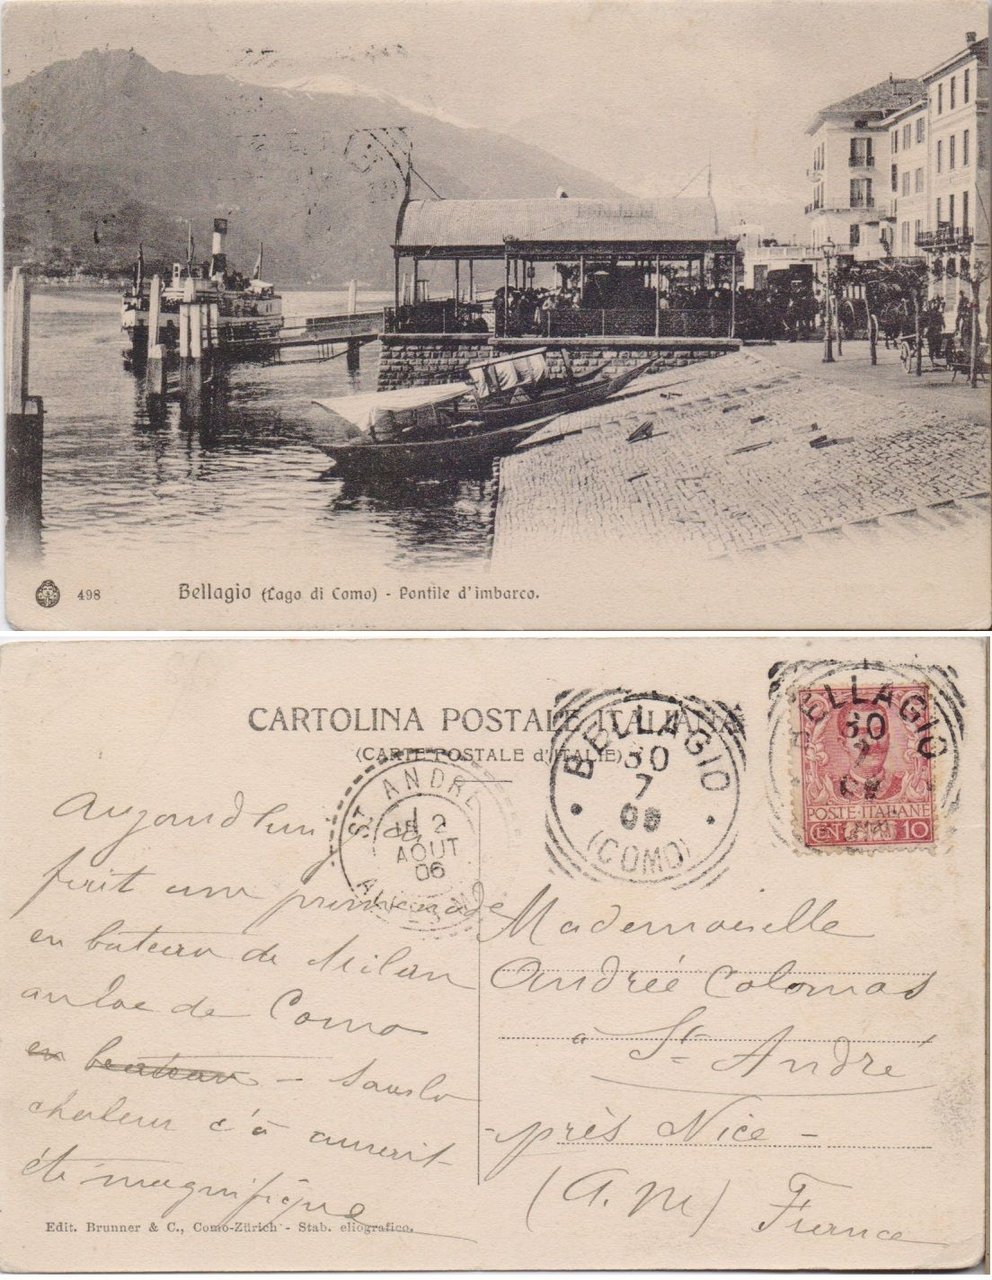 498
Bellagio (Lago di Como) - Pontile d'imbarco.
CARTOLINA POSTALE ITALIANA
(CARTE POSTALE d'ITALIE)
BELLAGIO
30
7
(COMO)
BELLAGIO
30
7
POSTE·ITALIANE
CENT. 10
ST ANDRÉ
2
AOUT
06
Aujourd'hui
fait une promenade
en bateau de Milan
au lac de Como
en bateau - sans la
chaleur c'a aurait
été magnifique
Mademoiselle
Andrée Colomas
à St André
- près Nice -
(A. M) France
Edit. Brunner & C., Como-Zürich - Stab. eliografico.